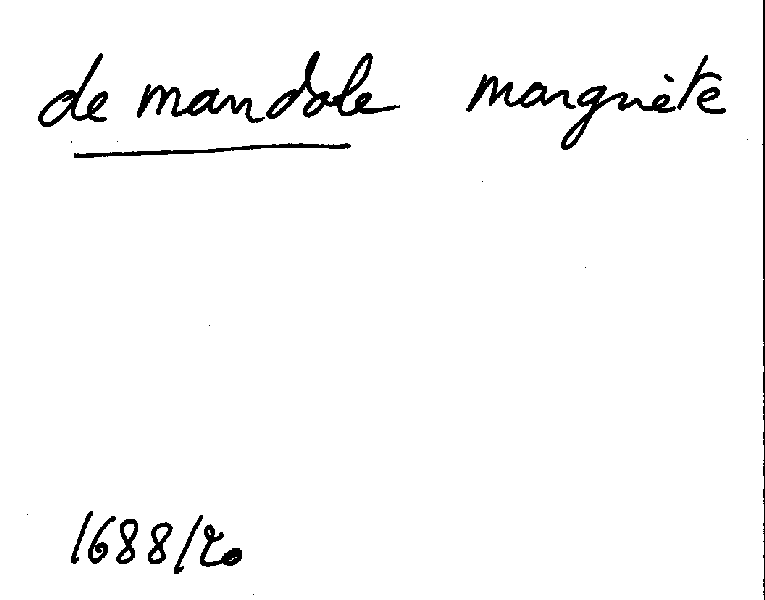 de mandole marguète
1688/20